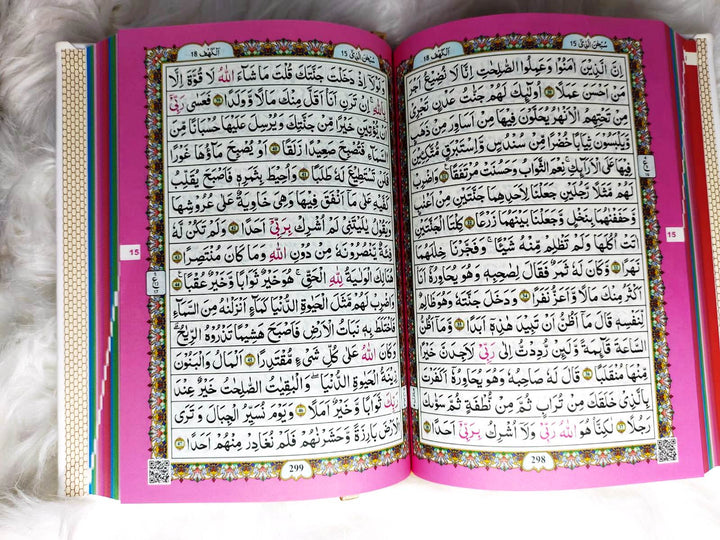 سُبْحٰنَ الَّذِیْۤ 15
اَلْكَهْف 18
اِنَّ الَّذِیْنَ اٰمَنُوْا وَعَمِلُوا الصّٰلِحٰتِ اِنَّا لَا نُضِیْعُ اَجْرَ
مَنْ اَحْسَنَ عَمَلًا ۝ اُولٰٓىِٕكَ لَهُمْ جَنّٰتُ عَدْنٍ تَجْرِیْ
مِنْ تَحْتِهِمُ الْاَنْهٰرُ یُحَلَّوْنَ فِیْهَا مِنْ اَسَاوِرَ مِنْ ذَهَبٍ
وَّیَلْبَسُوْنَ ثِیَابًا خُضْرًا مِّنْ سُنْدُسٍ وَّاِسْتَبْرَقٍ مُّتَّكِـِٕیْنَ
فِیْهَا عَلَی الْاَرَآىِٕكِ ؕ نِعْمَ الثَّوَابُ ؕ وَحَسُنَتْ مُرْتَفَقًا ۝ وَاضْرِبْ
لَهُمْ مَّثَلًا رَّجُلَیْنِ جَعَلْنَا لِاَحَدِهِمَا جَنَّتَیْنِ مِنْ اَعْنَابٍ
وَّحَفَفْنٰهُمَا بِنَخْلٍ وَّجَعَلْنَا بَیْنَهُمَا زَرْعًا ۝ كِلْتَا الْجَنَّتَیْنِ
اٰتَتْ اُكُلَهَا وَلَمْ تَظْلِمْ مِّنْهُ شَیْـًٔا ۙ وَّفَجَّرْنَا خِلٰلَهُمَا
نَهَرًا ۝ وَّكَانَ لَهٗ ثَمَرٌ ۚ فَقَالَ لِصَاحِبِهٖ وَهُوَ یُحَاوِرُهٗۤ اَنَا
اَكْثَرُ مِنْكَ مَالًا وَّاَعَزُّ نَفَرًا ۝ وَدَخَلَ جَنَّتَهٗ وَهُوَ ظَالِمٌ
لِّنَفْسِهٖ ۚ قَالَ مَاۤ اَظُنُّ اَنْ تَبِیْدَ هٰذِهٖۤ اَبَدًا ۝ وَّمَاۤ اَظُنُّ
السَّاعَةَ قَآىِٕمَةً ۙ وَّلَىِٕنْ رُّدِدْتُّ اِلٰی رَبِّیْ لَاَجِدَنَّ خَیْرًا
مِّنْهَا مُنْقَلَبًا ۝ قَالَ لَهٗ صَاحِبُهٗ وَهُوَ یُحَاوِرُهٗۤ اَكَفَرْتَ
بِالَّذِیْ خَلَقَكَ مِنْ تُرَابٍ ثُمَّ مِنْ نُّطْفَةٍ ثُمَّ سَوّٰىكَ
رَجُلًا ۝ لٰكِنَّا۠ هُوَ اللّٰهُ رَبِّیْ وَلَاۤ اُشْرِكُ بِرَبِّیْۤ اَحَدًا ۝
298
15
سُبْحٰنَ الَّذِیْۤ 15
اَلْكَهْف 18
وَلَوْلَاۤ اِذْ دَخَلْتَ جَنَّتَكَ قُلْتَ مَا شَآءَ اللّٰهُ ۙ لَا قُوَّةَ اِلَّا
بِاللّٰهِ ۚ اِنْ تَرَنِ اَنَا اَقَلَّ مِنْكَ مَالًا وَّوَلَدًا ۝ فَعَسٰی رَبِّیْۤ
اَنْ یُّؤْتِیَنِ خَیْرًا مِّنْ جَنَّتِكَ وَیُرْسِلَ عَلَیْهَا حُسْبَانًا مِّنَ
السَّمَآءِ فَتُصْبِحَ صَعِیْدًا زَلَقًا ۝ اَوْ یُصْبِحَ مَآؤُهَا غَوْرًا
فَلَنْ تَسْتَطِیْعَ لَهٗ طَلَبًا ۝ وَاُحِیْطَ بِثَمَرِهٖ فَاَصْبَحَ یُقَلِّبُ
كَفَّیْهِ عَلٰی مَاۤ اَنْفَقَ فِیْهَا وَهِیَ خَاوِیَةٌ عَلٰی عُرُوْشِهَا
وَیَقُوْلُ یٰلَیْتَنِیْ لَمْ اُشْرِكْ بِرَبِّیْۤ اَحَدًا ۝ وَلَمْ تَكُنْ لَّهٗ
فِئَةٌ یَّنْصُرُوْنَهٗ مِنْ دُوْنِ اللّٰهِ وَمَا كَانَ مُنْتَصِرًا ۝
هُنَالِكَ الْوَلَایَةُ لِلّٰهِ الْحَقِّ ؕ هُوَ خَیْرٌ ثَوَابًا وَّخَیْرٌ عُقْبًا ۝
وَاضْرِبْ لَهُمْ مَّثَلَ الْحَیٰوةِ الدُّنْیَا كَمَآءٍ اَنْزَلْنٰهُ مِنَ السَّمَآءِ
فَاخْتَلَطَ بِهٖ نَبَاتُ الْاَرْضِ فَاَصْبَحَ هَشِیْمًا تَذْرُوْهُ الرِّیٰحُ ؕ
وَكَانَ اللّٰهُ عَلٰی كُلِّ شَیْءٍ مُّقْتَدِرًا ۝ اَلْمَالُ وَالْبَنُوْنَ
زِیْنَةُ الْحَیٰوةِ الدُّنْیَا ۚ وَالْبٰقِیٰتُ الصّٰلِحٰتُ خَیْرٌ عِنْدَ
رَبِّكَ ثَوَابًا وَّخَیْرٌ اَمَلًا ۝ وَیَوْمَ نُسَیِّرُ الْجِبَالَ وَتَرَی
الْاَرْضَ بَارِزَةً ۙ وَّحَشَرْنٰهُمْ فَلَمْ نُغَادِرْ مِنْهُمْ اَحَدًا ۝
299
15